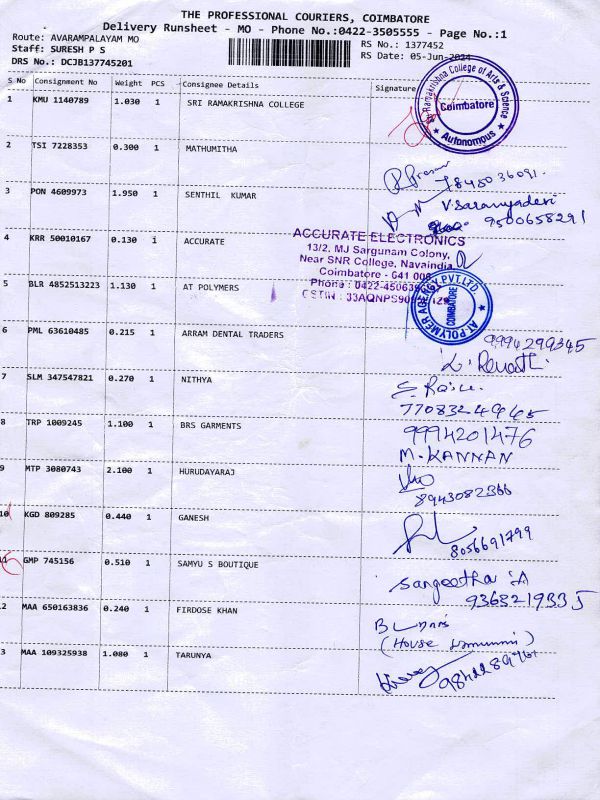 THE PROFESSIONAL COURIERS, COIMBATORE
Delivery Runsheet - MO - Phone No.:0422-3505555 - Page No.:1
Route: AVARAMPALAYAM MO
Staff: SURESH P S
DRS No.: DCJB137745201
RS No.: 1377452
RS Date: 05-Jun-2024
S No Consignment No Weight PCS Consignee Details Signature
1 KMU 1140789 1.030 1 SRI RAMAKRISHNA COLLEGE
Ramakrishna College of Arts & Science
Coimbatore
Autonomous
2 TSI 7228353 0.300 1 MATHUMITHA
3 PON 4609973 1.950 1 SENTHIL KUMAR
V. Saranyadevi
9500658291
4 KRR 50010167 0.130 1 ACCURATE
ACCURATE ELECTRONICS
13/2, MJ Sargunam Colony,
Near SNR College, Navaindia,
Coimbatore - 641 006
Phone : 0422-
GSTIN : 33AQNPS
5 BLR 4852513223 1.130 1 AT POLYMERS
AT POLYMER AGENCY PVT. LTD
COIMBATORE
6 PML 63610485 0.215 1 ARRAM DENTAL TRADERS
9994299345
7 SLM 347547821 0.270 1 NITHYA
8 TRP 1009245 1.100 1 BRS GARMENTS
9994201476
M. KANNAN
9 MTP 3080743 2.100 1 HURUDAYARAJ
8943082366
10 KGD 809285 0.440 1 GANESH
8056691799
11 GMP 745156 0.510 1 SAMYU S BOUTIQUE
Sangeetha
9363219335
12 MAA 650163836 0.240 1 FIRDOSE KHAN
(House
13 MAA 109325938 1.080 1 TARUNYA